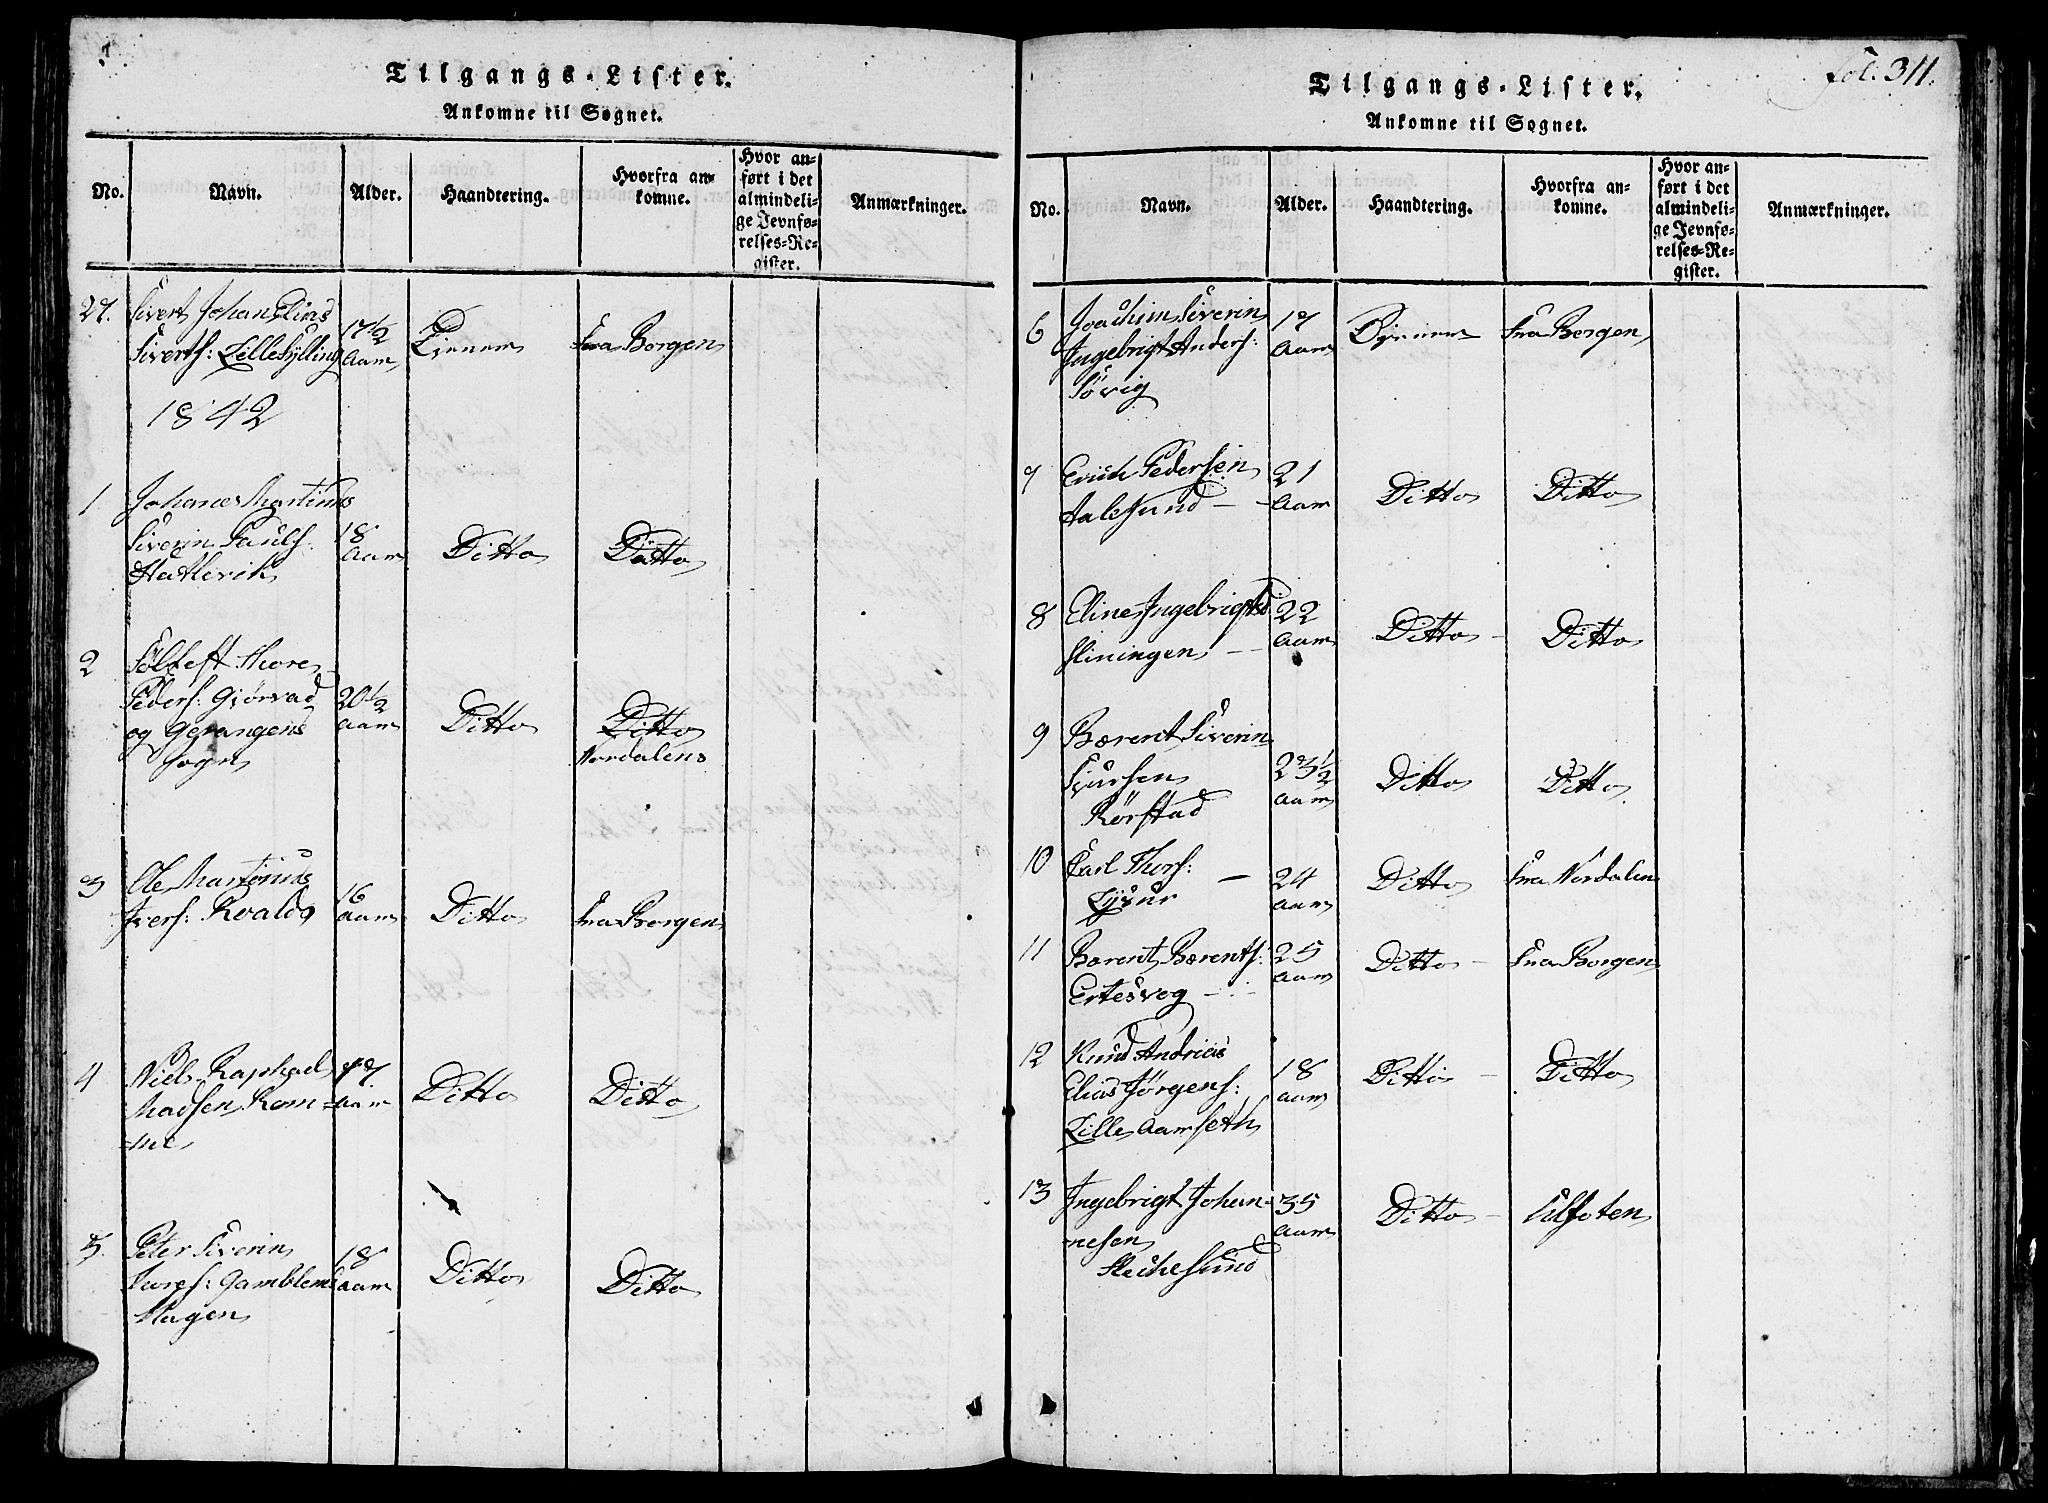 Tilgangs-Lister.
Ankomne til Sognet.
No.
Navn.
Alder.
Haandtering.
Hvorfra an-
komne.
Hvor an-
ført i det
almindeli-
ge Jevnfø-
relses-Re-
gister.
Anmærkninger.
27.
Sivert Johan Elias
Siverts: Lillesylling
17½
Aar
Tjener
Fra Borgen
1842
1
Johanes Martinus
Siverin Pauls:
Hatlevik
18
Aar
Ditto
Ditto
2
Thore
Peders: Gjørvad
og Gerangens
sogn
20½
Aar
Ditto
Ditto
Nordalens
3
Ole Martinus
Ivers: Roalds
16
Aar
Ditto
Fra Borgen
4
Niels Raphael
Madsen Rem-
-me
17.
Aar
Ditto
Ditto
5.
Peter Siverin
Lars: Gamblem
Hagen
18
Aar
Ditto
Ditto
Fol: 311.
Tilgangs-Lister.
Ankomne til Sognet.
No.
Navn.
Alder.
Haandtering.
Hvorfra an-
komne.
Hvor an-
ført i det
almindeli-
ge Jevnfø-
relses-Re-
gister.
Anmærkninger.
6
Joachim Siverin
Ingebrigt Anders:
Søvig
17
Aar
Tjener
Fra Borgen
7
Erich Pedersen
Aalesund
21
Aar
Ditto
Ditto
8
Eline Ingebrigts:
Sliningen
22
Aar
Ditto
Ditto
9
Bærent Siverin
Sjursen
Rørstad
23½
Aar
Ditto
Ditto
10
Carl Thors:
24
Aar
Ditto
Fra Nordalen
11
Bærent Bærents:
Ertesvog
25
Aar
Ditto
Fra Borgen
12
Knud Andreas
Elias Jørgens:
Lille Aamseth
18
Aar
Ditto
Ditto
13
Ingebrigt Johan-
-nesen
Flechesund
35
Aar
Ditto
Ulfoten